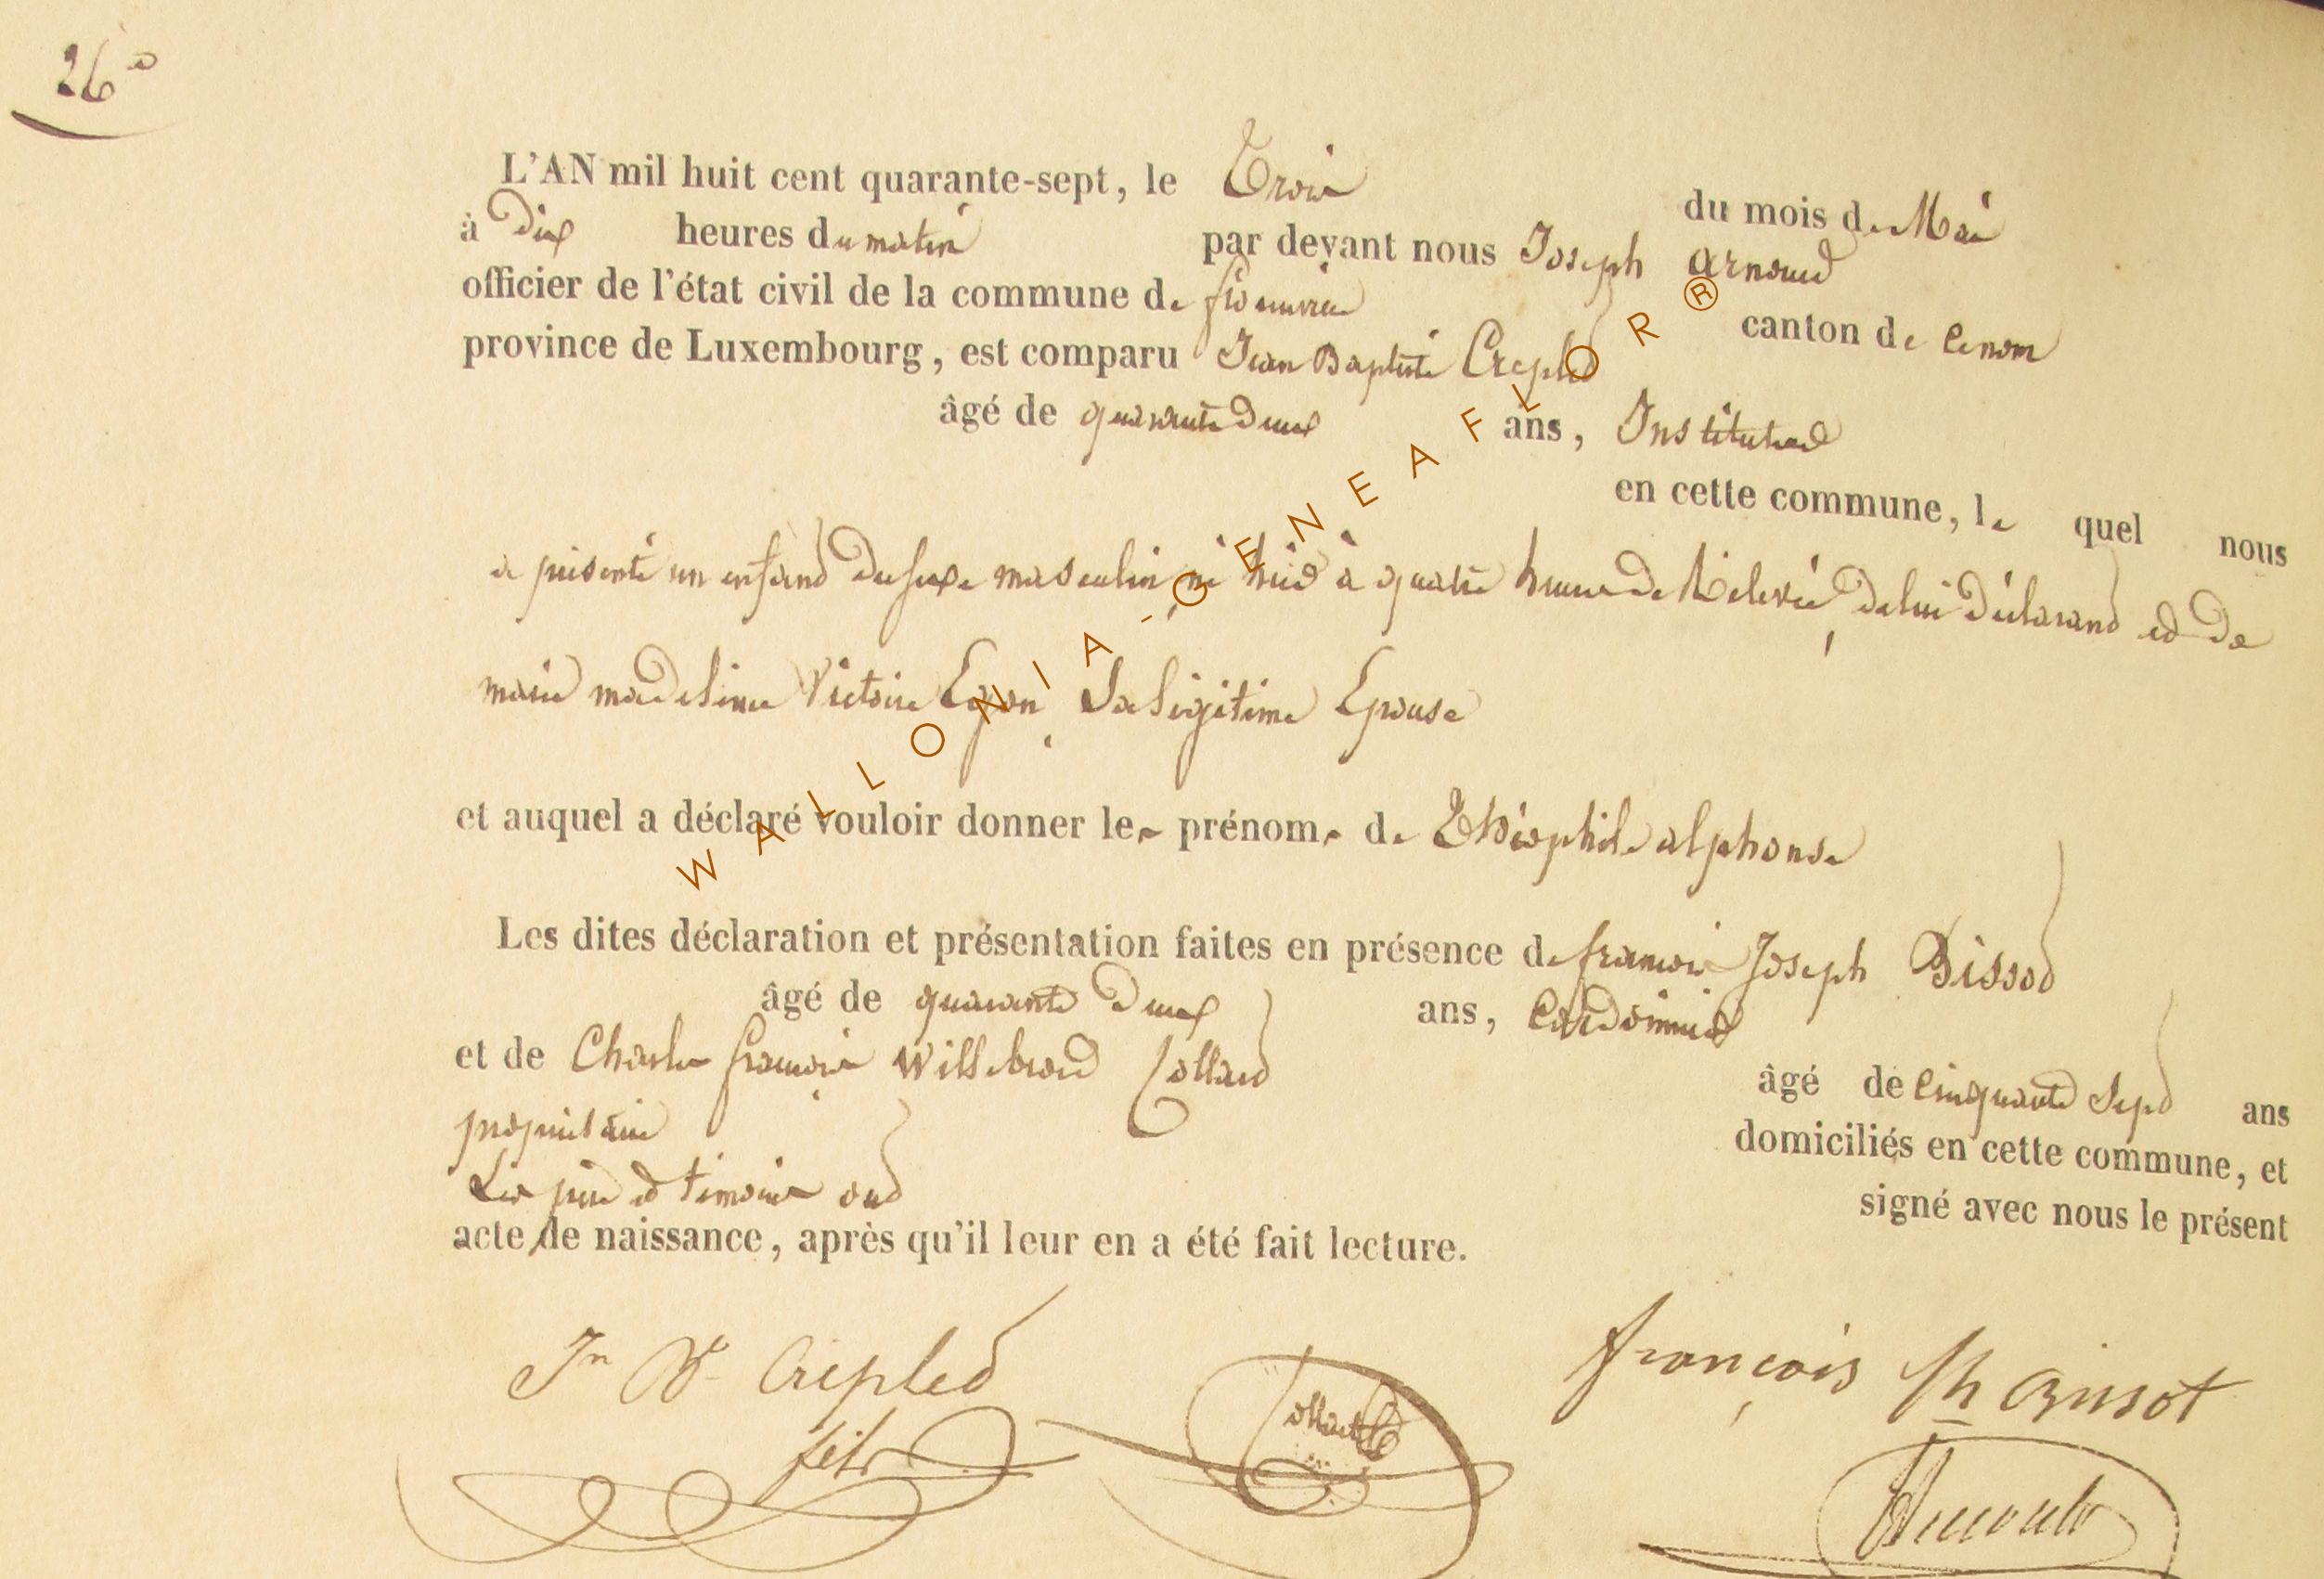 26e
L'AN mil huit cent quarante-sept, le Trois du mois de Mai
à Dix heures du matin par devant nous Joseph Arnoud
officier de l'état civil de la commune de canton de
province de Luxembourg, est comparu Jean Baptiste Crepled
âgé de quarante Deux ans, Instituteur
en cette commune, le quel nous
a présenté un enfand du sexe masculin né hier à quatre heures de Relevée, de lui Déclarand ed De
marie madeleine Victoire Sa légitime Epouse
et auquel a déclaré vouloir donner les prénoms de Théophile alphonse
Les dites déclaration et présentation faites en présence de francois Joseph Bissod
âgé de quarante Deux ans, Cordonnier
et de Charles francois Willebrord Collard âgé de Cinquante Sept ans
propriétaire domiciliés en cette commune, et
Les père et témoins ond signé avec nous le présent
acte de naissance, après qu'il leur en a été fait lecture.
Jn Bte Crepled
fils
Collard
françois Jh Bissot
WALLONIA-GENEAFLOR®